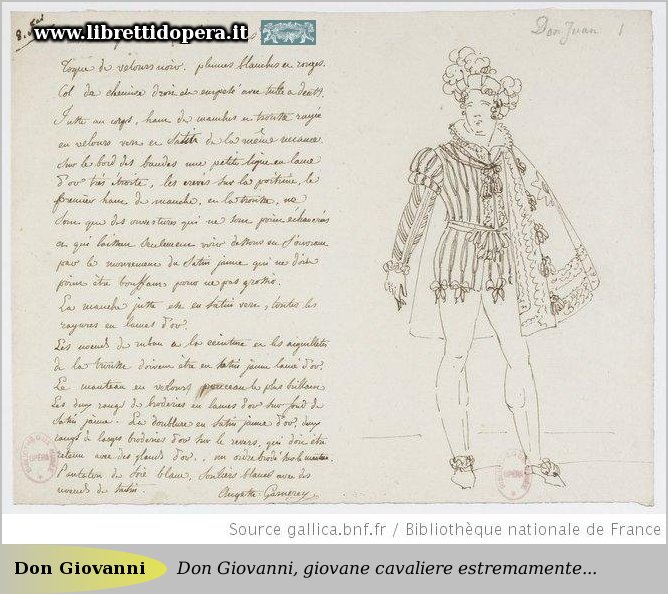 8.
www.librettidopera.it
Don Juan 1
Toque de velours noir. plumes blanches et rouges.
Col de chemise droit et empesé avec tulle a dents.
Juste au corps, haut de manches et trousse rayée
en velours vert et satin de la même nuance.
Sur le bord des bandes une petite ligne en lame
d'or très étroite, les crevés sur la poitrine, le
premier haut de manche, et la trousse, ne
sont que des ouvertures qui ne sont point échancrées
ce qui laissent seulement voir dessous en s'ouvrant
par le mouvement du satin jaune qui ne doit
point être bouffant pour ne pas grossir.
La manche juste est en satin vert, toutes les
rayures en lames d'or.
Les noeuds de ruban a la ceinture et les aiguillettes
de la trousse doivent être en satin jaune lamé d'or.
Le manteau en velours ponceau le plus brillant
Les deux rangs de broderies en lames d'or sur fond de
satin jaune. La doublure en satin jaune d'or, deux
rangs de larges broderies d'or sur le revers, qui doit être
retenu avec des glands d'or., un ordre brodé sur le manteau
Pantalon de soie blanc, souliers blancs avec des
noeuds de satin.
Auguste Garnerey
OPÉRA
Source gallica.bnf.fr / Bibliothèque nationale de France
Don Giovanni
Don Giovanni, giovane cavaliere estremamente...